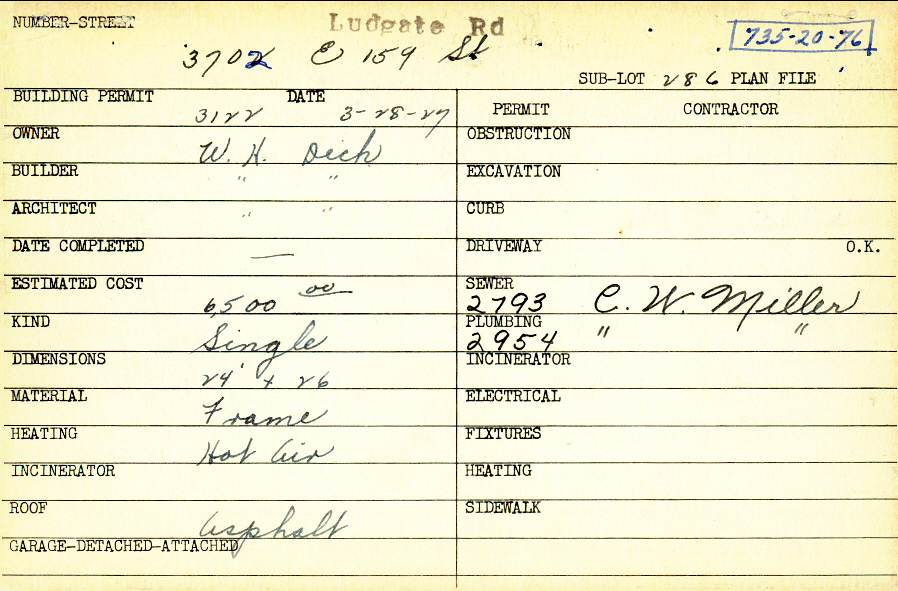 NUMBER-STREET Ludgate Rd
3702 E 159 St 735-20-76
SUB-LOT 286 PLAN FILE
BUILDING PERMIT 3122 DATE 3-28-27
PERMIT CONTRACTOR
OWNER W. H. Dich
OBSTRUCTION
BUILDER " "
EXCAVATION
ARCHITECT " "
CURB
DATE COMPLETED —
DRIVEWAY O.K.
ESTIMATED COST 6,500 00
SEWER 2793 C. W. Miller
KIND Single
PLUMBING 2954 " "
DIMENSIONS 24' x 26
INCINERATOR
MATERIAL Frame
ELECTRICAL
HEATING Hot Air
FIXTURES
INCINERATOR
HEATING
ROOF Asphalt
SIDEWALK
GARAGE-DETACHED-ATTACHED